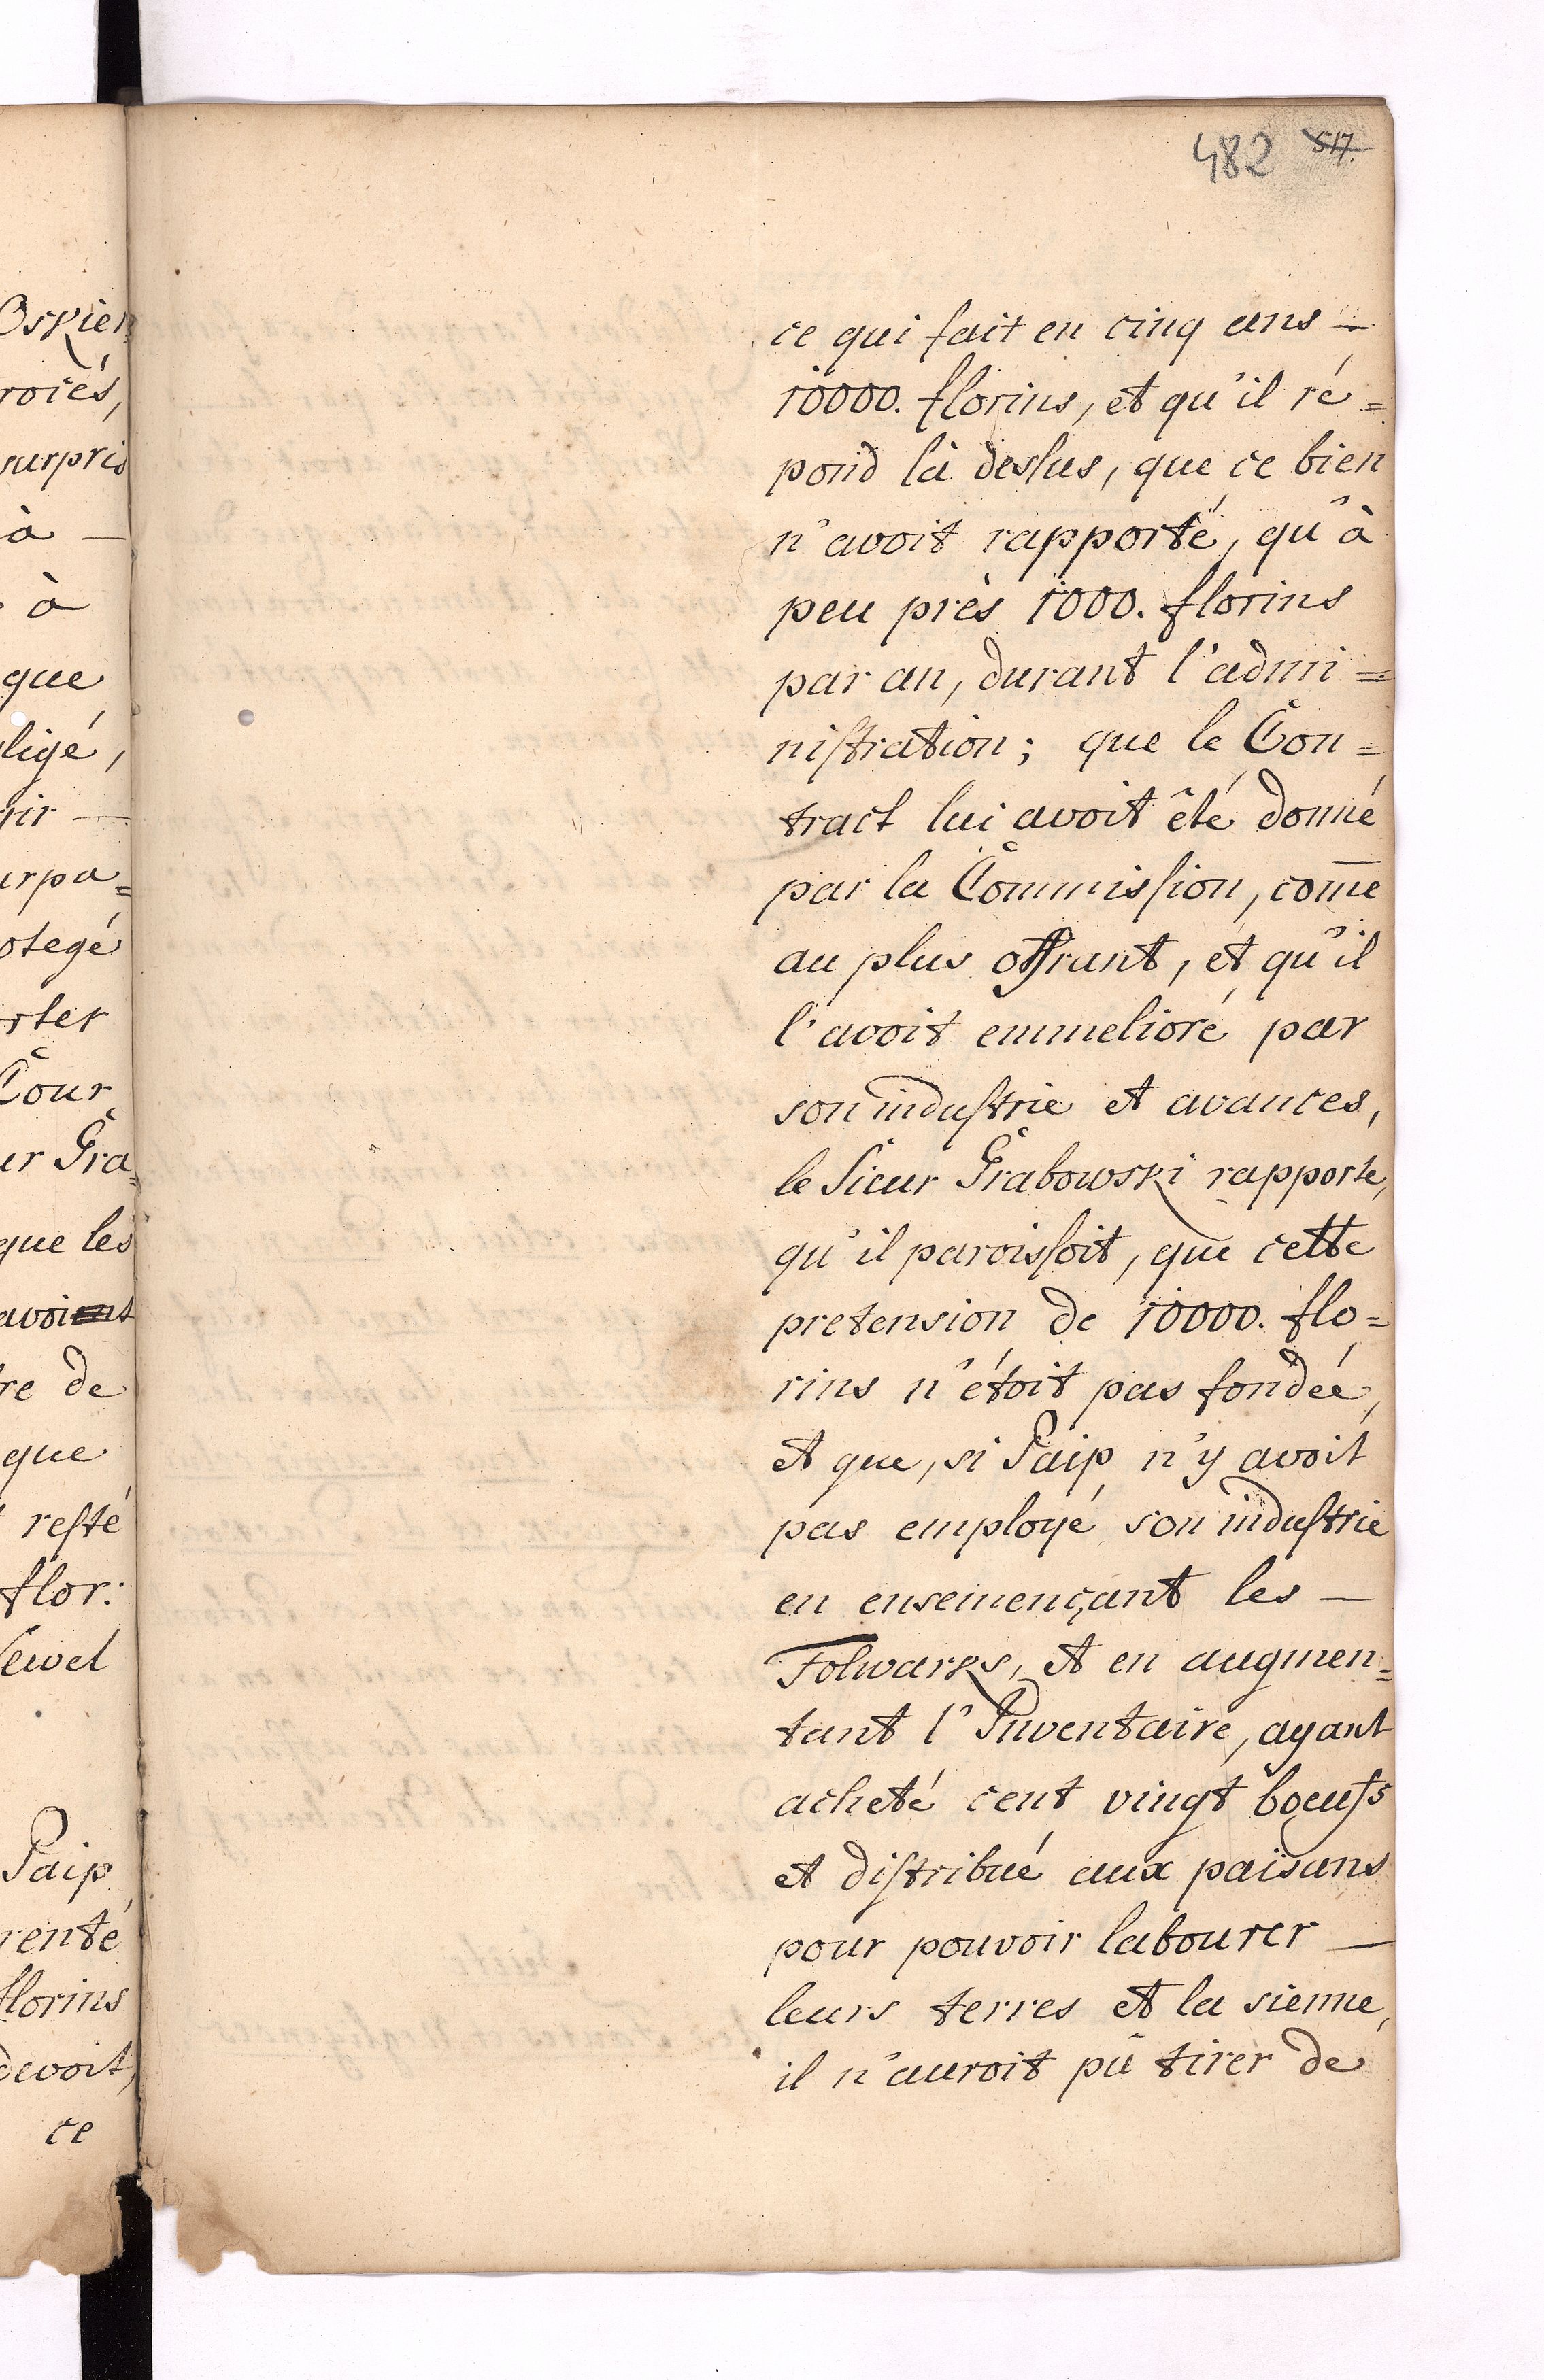 482 517.
Oskien
roiés,
surpris
à —
à
que
ligé,
nir —
urpa=
otegé
rter
Cour
ur Gra=
que les
avoient
re de
que
resté
flor:
ewel
Paip
renté
florins
devoit,
ce
ce qui fait en cinq ans —
10000. florins, et qu'il ré=
pond là dessus, que ce bien
n'avoit rapporté, qu'à
peu près 1000. florins
par an, durant l'admi=
nistration; que le Con=
tract lui avoit êté donné
par la Commission, come
au plus offrant, et qu'il
l'avoit emmelioré par
son industrie et avances,
le Sieur Grabowski rapporte,
qu'il paroissoit, que cette
pretension de 10000. flo=
rins n'étoit pas fondée,
et que, si Paip n'y avoit
pas employé son industrie
en ensemençant les —
Folwarks, et en augmen=
tant l'Inventaire, ayant
acheté cent vingt boeufs
et distribué aux paisans
pour pouvoir labourer —
leurs terres et la sienne,
il n'auroit pû tirer de